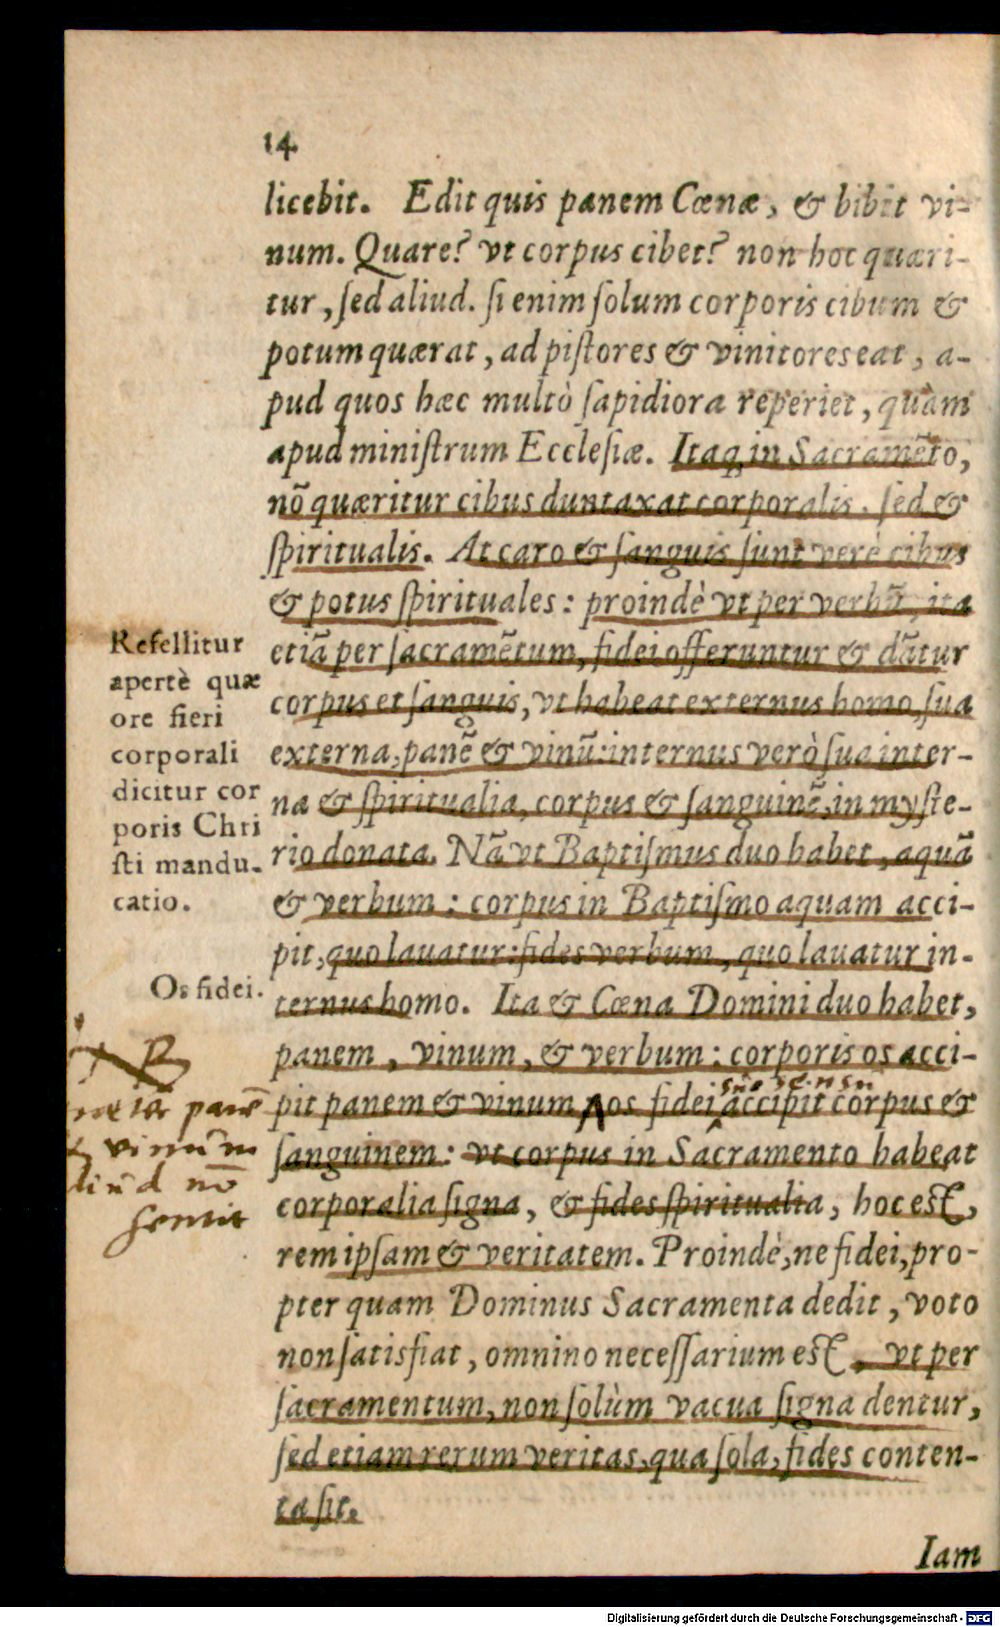 14
licebit. Edit quis panem Cœnæ, & bibit vi-
num. Quare? vt corpus cibet? non hoc quæri-
tur, ſed aliud. ſi enim ſolum corporis cibum &
potum quærat, ad piſtores & vinitores eat, a-
pud quos hæc multò ſapidiora reperiet, quàm
apud miniſtrum Eccleſiæ. Itaq; in Sacramẽto,
nõ quæritur cibus duntaxat corporalis. ſed &
ſpiritualis. At caro & ſanguis ſunt verè cibus
& potus ſpirituales: proindè vt per verbũ, ita
etiã per ſacramẽtum, fidei offeruntur & dãtur
corpus et ſanguis, vt habeat externus homo, ſua
externa, panẽ & vinũ: internus verò ſua inter-
na & ſpiritualia, corpus & ſanguinẽ, in myſte-
rio donata. Nã vt Baptiſmus duo habet, aquã
& verbum: corpus in Baptiſmo aquam acci-
pit, quo lauatur: fides verbum, quo lauatur in-
ternus homo. Ita & Cœna Domini duo habet,
panem, vinum, & verbum: corporis os acci-
pit panem & vinum, os fidei accipit corpus &
ſanguinem: vt corpus in Sacramento habeat
corporalia ſigna, & fides ſpiritualia, hoc eſt,
rem ipſam & veritatem. Proindè, ne fidei, pro-
pter quam Dominus Sacramenta dedit, voto
non ſatisfiat, omnino neceſſarium eſt, vt per
ſacramentum, non ſolùm vacua ſigna dentur,
ſed etiam rerum veritas, qua ſola, fides conten-
ta ſit.
Iam
Refellitur
apertè quæ
ore fieri
corporali
dicitur cor
poris Chri
ſti mandu-
catio.
Os fidei.
panẽ
vinũm
nõ
sentit
Digitalisierung gefördert durch die Deutsche Forschungsgemeinschaft - DFG